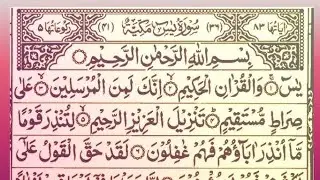 اٰیاتها ٨٣ (٣٦) سُوْرَةُ یٰسٓ مَكِّیَّةٌ (٤١) رُكُوْعَاتُهَا ٥
بِسْمِ اللّٰهِ الرَّحْمٰنِ الرَّحِیْمِ
یٰسٓ ۝ وَالْقُرْاٰنِ الْحَكِیْمِ ۝ اِنَّكَ لَمِنَ الْمُرْسَلِیْنَ ۝ عَلٰی
صِرَاطٍ مُّسْتَقِیْمٍ ۝ تَنْزِیْلَ الْعَزِیْزِ الرَّحِیْمِ ۝ لِتُنْذِرَ قَوْمًا
مَّاۤ اُنْذِرَ اٰبَآؤُهُمْ فَهُمْ غٰفِلُوْنَ ۝ لَقَدْ حَقَّ الْقَوْلُ عَلٰۤی